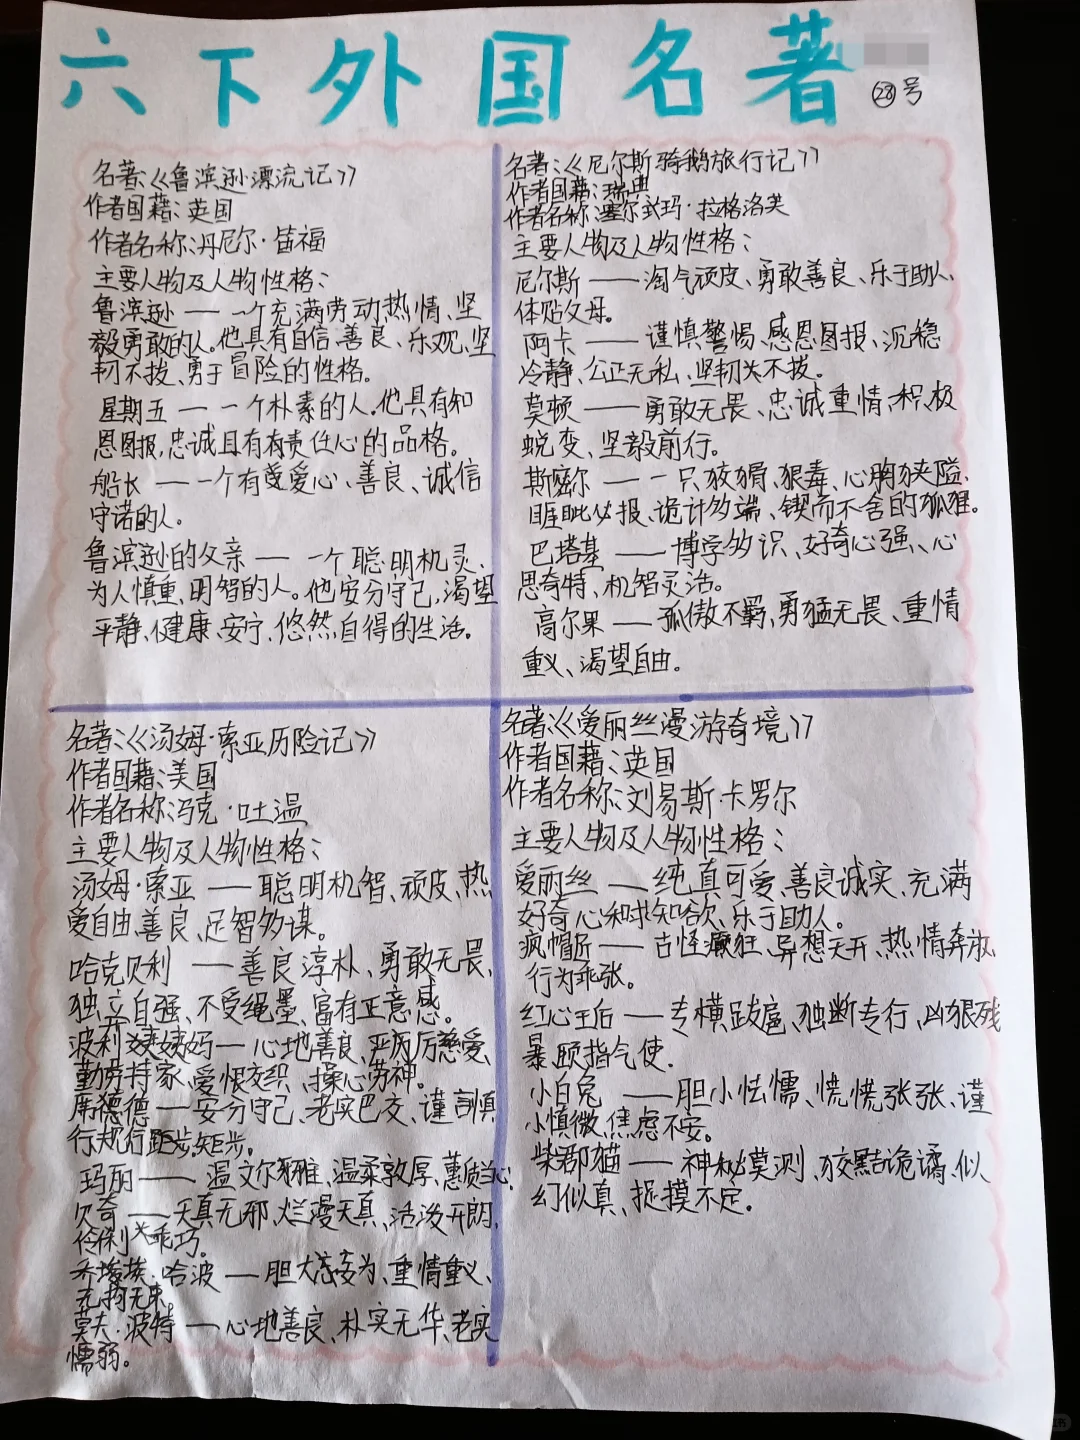 六下外国名著
㉘号
名著:《鲁滨逊漂流记》
作者国籍:英国
作者名称:丹尼尔·笛福
主要人物及人物性格:
鲁滨逊——一个充满劳动热情、坚
毅勇敢的人。他具有自信、善良、乐观、坚
韧不拔、勇于冒险的性格。
星期五——一个朴素的人。他具有知
恩图报,忠诚且有责任心的品格。
船长——一个有爱心、善良、诚信
守诺的人。
鲁滨逊的父亲——一个聪明机灵、
为人慎重、明智的人。他安分守己,渴望
平静、健康、安宁、悠然自得的生活。
名著:《尼尔斯骑鹅旅行记》
作者国籍:瑞典
作者名称:塞尔玛·拉格洛芙
主要人物及人物性格:
尼尔斯——淘气顽皮、勇敢善良、乐于助人、
体贴父母。
阿卡——谨慎警惕、感恩图报、沉稳
冷静、公正无私、坚韧不拔。
莫顿——勇敢无畏、忠诚重情、积极
蜕变、坚毅前行。
斯密尔——一只狡猾、狠毒、心胸狭隘、
睚眦必报、诡计多端、锲而不舍的狐狸。
巴塔基——博学多识、好奇心强、心
思奇特、机智灵活。
高尔果——孤傲不羁、勇猛无畏、重情
重义、渴望自由。
名著:《汤姆·索亚历险记》
作者国籍:美国
作者名称:马克·吐温
主要人物及人物性格:
汤姆·索亚——聪明机智、顽皮、热
爱自由、善良、足智多谋。
哈克贝利——善良淳朴、勇敢无畏、
独立自强、不受绳墨、富有正意感。
波利姨妈——心地善良、严厉慈爱、
勤劳持家、爱恨交织、操心劳神。
席德——安分守己、老实巴交、谨言慎
行、规行矩步。
玛丽——温文尔雅、温柔敦厚、蕙质兰心
贝奇——天真无邪、烂漫天真、活泼开朗、
伶俐乖巧。
乔埃·哈波——胆大妄为、重情重义、
无拘无束
莫夫·波特——心地善良、朴实无华、老实
懦弱。
名著:《爱丽丝漫游奇境》
作者国籍:英国
作者名称:刘易斯·卡罗尔
主要人物及人物性格:
爱丽丝——纯真可爱、善良诚实、充满
好奇心和求知欲、乐于助人。
疯帽匠——古怪癫狂、异想天开、热情奔放、
行为乖张。
红心王后——专横跋扈、独断专行、凶狠残
暴、颐指气使.
小白兔——胆小怯懦、慌慌张张、谨
小慎微、焦虑不安。
柴郡猫——神秘莫测、狡黠诡谲、似
幻似真、捉摸不定。